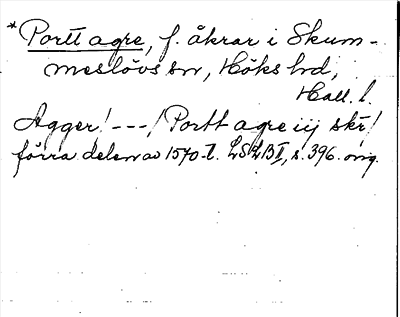 *Portt agre, f. åkrar i Skum-
meslövs sn, Höks hd,
Hall. l.
Agger! ---/Portt agre iij skr/
förra delen av 1570-t. LSLB II, s. 396. orig.